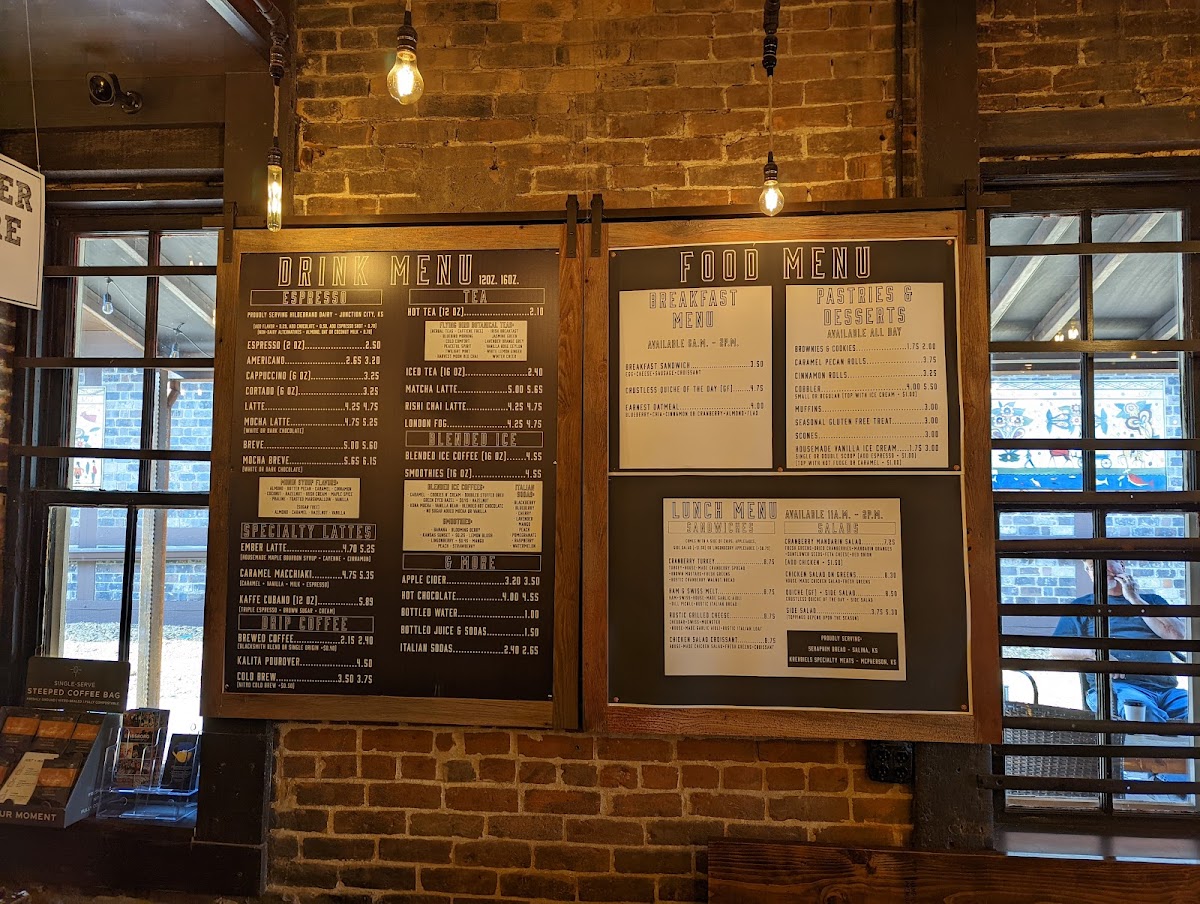 DRINK MENU 12OZ. 16OZ.
ESPRESSO
PROUDLY SERVING HILDEBRAND DAIRY - JUNCTION CITY, KS
ESPRESSO (2 OZ)..........2.50
AMERICANO..........2.65 3.20
CAPPUCCINO (6 OZ)..........3.25
CORTADO (6 OZ)..........3.25
LATTE..........4.25 4.75
MOCHA LATTE..........4.75 5.25
(WHITE OR DARK CHOCOLATE)
BREVE..........5.00 5.60
MOCHA BREVE..........5.65 6.15
(WHITE OR DARK CHOCOLATE)
MONIN SYRUP FLAVORS:
ALMOND - BUTTER PECAN - CARAMEL - CINNAMON
COCONUT - HAZELNUT - IRISH CREAM - MAPLE SPICE
PRALINE - TOASTED MARSHMALLOW - VANILLA
SUGAR FREE:
ALMOND - CARAMEL - HAZELNUT - VANILLA
SPECIALTY LATTES
EMBER LATTE..........4.70 5.25
(HOUSEMADE MAPLE BOURBON SYRUP - CAYENNE - CINNAMON)
CARAMEL MACCHIATO..........4.75 5.35
(CARAMEL - VANILLA - MILK - ESPRESSO)
KAFFE CUBANO (12 OZ)..........5.09
(TRIPLE ESPRESSO - BROWN SUGAR - CREAM)
DRIP COFFEE
BREWED COFFEE..........2.15 2.40
(BLACKSMITH BLEND OR SINGLE ORIGIN +$0.40)
KALITA POUROVER..........4.50
COLD BREW..........3.50 3.75
(NITRO COLD BREW +$0.50)
TEA
HOT TEA (12 OZ)..........2.10
FLYING BIRD BOTANICAL TEAS:
ICED TEA (16 OZ)..........2.40
MATCHA LATTE..........5.00 5.65
RISHI CHAI LATTE..........4.25 4.75
LONDON FOG..........4.25 4.75
BLENDED ICE
BLENDED ICE COFFEE (16 OZ)..........4.55
SMOOTHIES (16 OZ)..........4.55
BLENDED ICE COFFEES:
SMOOTHIES:
BANANA - BLOOMING BERRY
PEACH - STRAWBERRY
ITALIAN
SODAS:
BLACKBERRY
BLUEBERRY
CHERRY
LAVENDER
MANGO
PEACH
POMEGRANATE
RASPBERRY
WATERMELON
& MORE
APPLE CIDER..........3.20 3.50
HOT CHOCOLATE..........4.00 4.55
BOTTLED WATER..........1.00
BOTTLED JUICE & SODAS..........1.50
ITALIAN SODAS..........2.40 2.65
FOOD MENU
BREAKFAST
MENU
AVAILABLE 6A.M. - 2P.M.
BREAKFAST SANDWICH..........3.50
EGG-CHEESE-SAUSAGE-CROISSANT
CRUSTLESS QUICHE OF THE DAY (GF)..........4.75
EARNEST OATMEAL..........4.00
BLUEBERRY-CHIA-CINNAMON OR CRANBERRY-ALMOND-FLAX
PASTRIES &
DESSERTS
AVAILABLE ALL DAY
BROWNIES & COOKIES..........1.75 2.00
CARAMEL PECAN ROLLS..........3.75
CINNAMON ROLLS..........3.25
COBBLER..........4.00 5.50
SMALL OR REGULAR (TOP WITH ICE CREAM + $1.00)
MUFFINS..........3.00
SEASONAL GLUTEN FREE TREAT..........3.00
SCONES..........3.00
HOUSEMADE VANILLA ICE CREAM..........1.75 3.00
SINGLE OR DOUBLE SCOOP (ADD ESPRESSO + $1.00)
(TOP WITH HOT FUDGE OR CARAMEL + $1.00)
LUNCH MENU AVAILABLE 11A.M. - 2P.M.
SANDWICHES
CRANBERRY TURKEY..........8.75
HAM & SWISS MELT..........8.75
RUSTIC GRILLED CHEESE..........8.75
CHICKEN SALAD CROISSANT..........8.75
HOUSE-MADE CHICKEN SALAD-FRESH GREENS-CROISSANT
SALADS
CRANBERRY MANDARIN SALAD..........7.25
FRESH GREENS-DRIED CRANBERRIES-MANDARIN ORANGES
(ADD CHICKEN + $1.50)
CHICKEN SALAD ON GREENS..........8.30
HOUSE-MADE CHICKEN SALAD-FRESH GREENS
QUICHE (GF) + SIDE SALAD..........8.50
CRUSTLESS QUICHE OF THE DAY + SIDE SALAD
SIDE SALAD..........3.75 5.30
(TOPPINGS DEPEND UPON THE SEASON)
PROUDLY SERVING:
SERAPHIM BREAD - SALINA, KS
KREHBIELS SPECIALTY MEATS - MCPHERSON, KS
SINGLE-SERVE
STEEPED COFFEE BAG
UR MOMENT